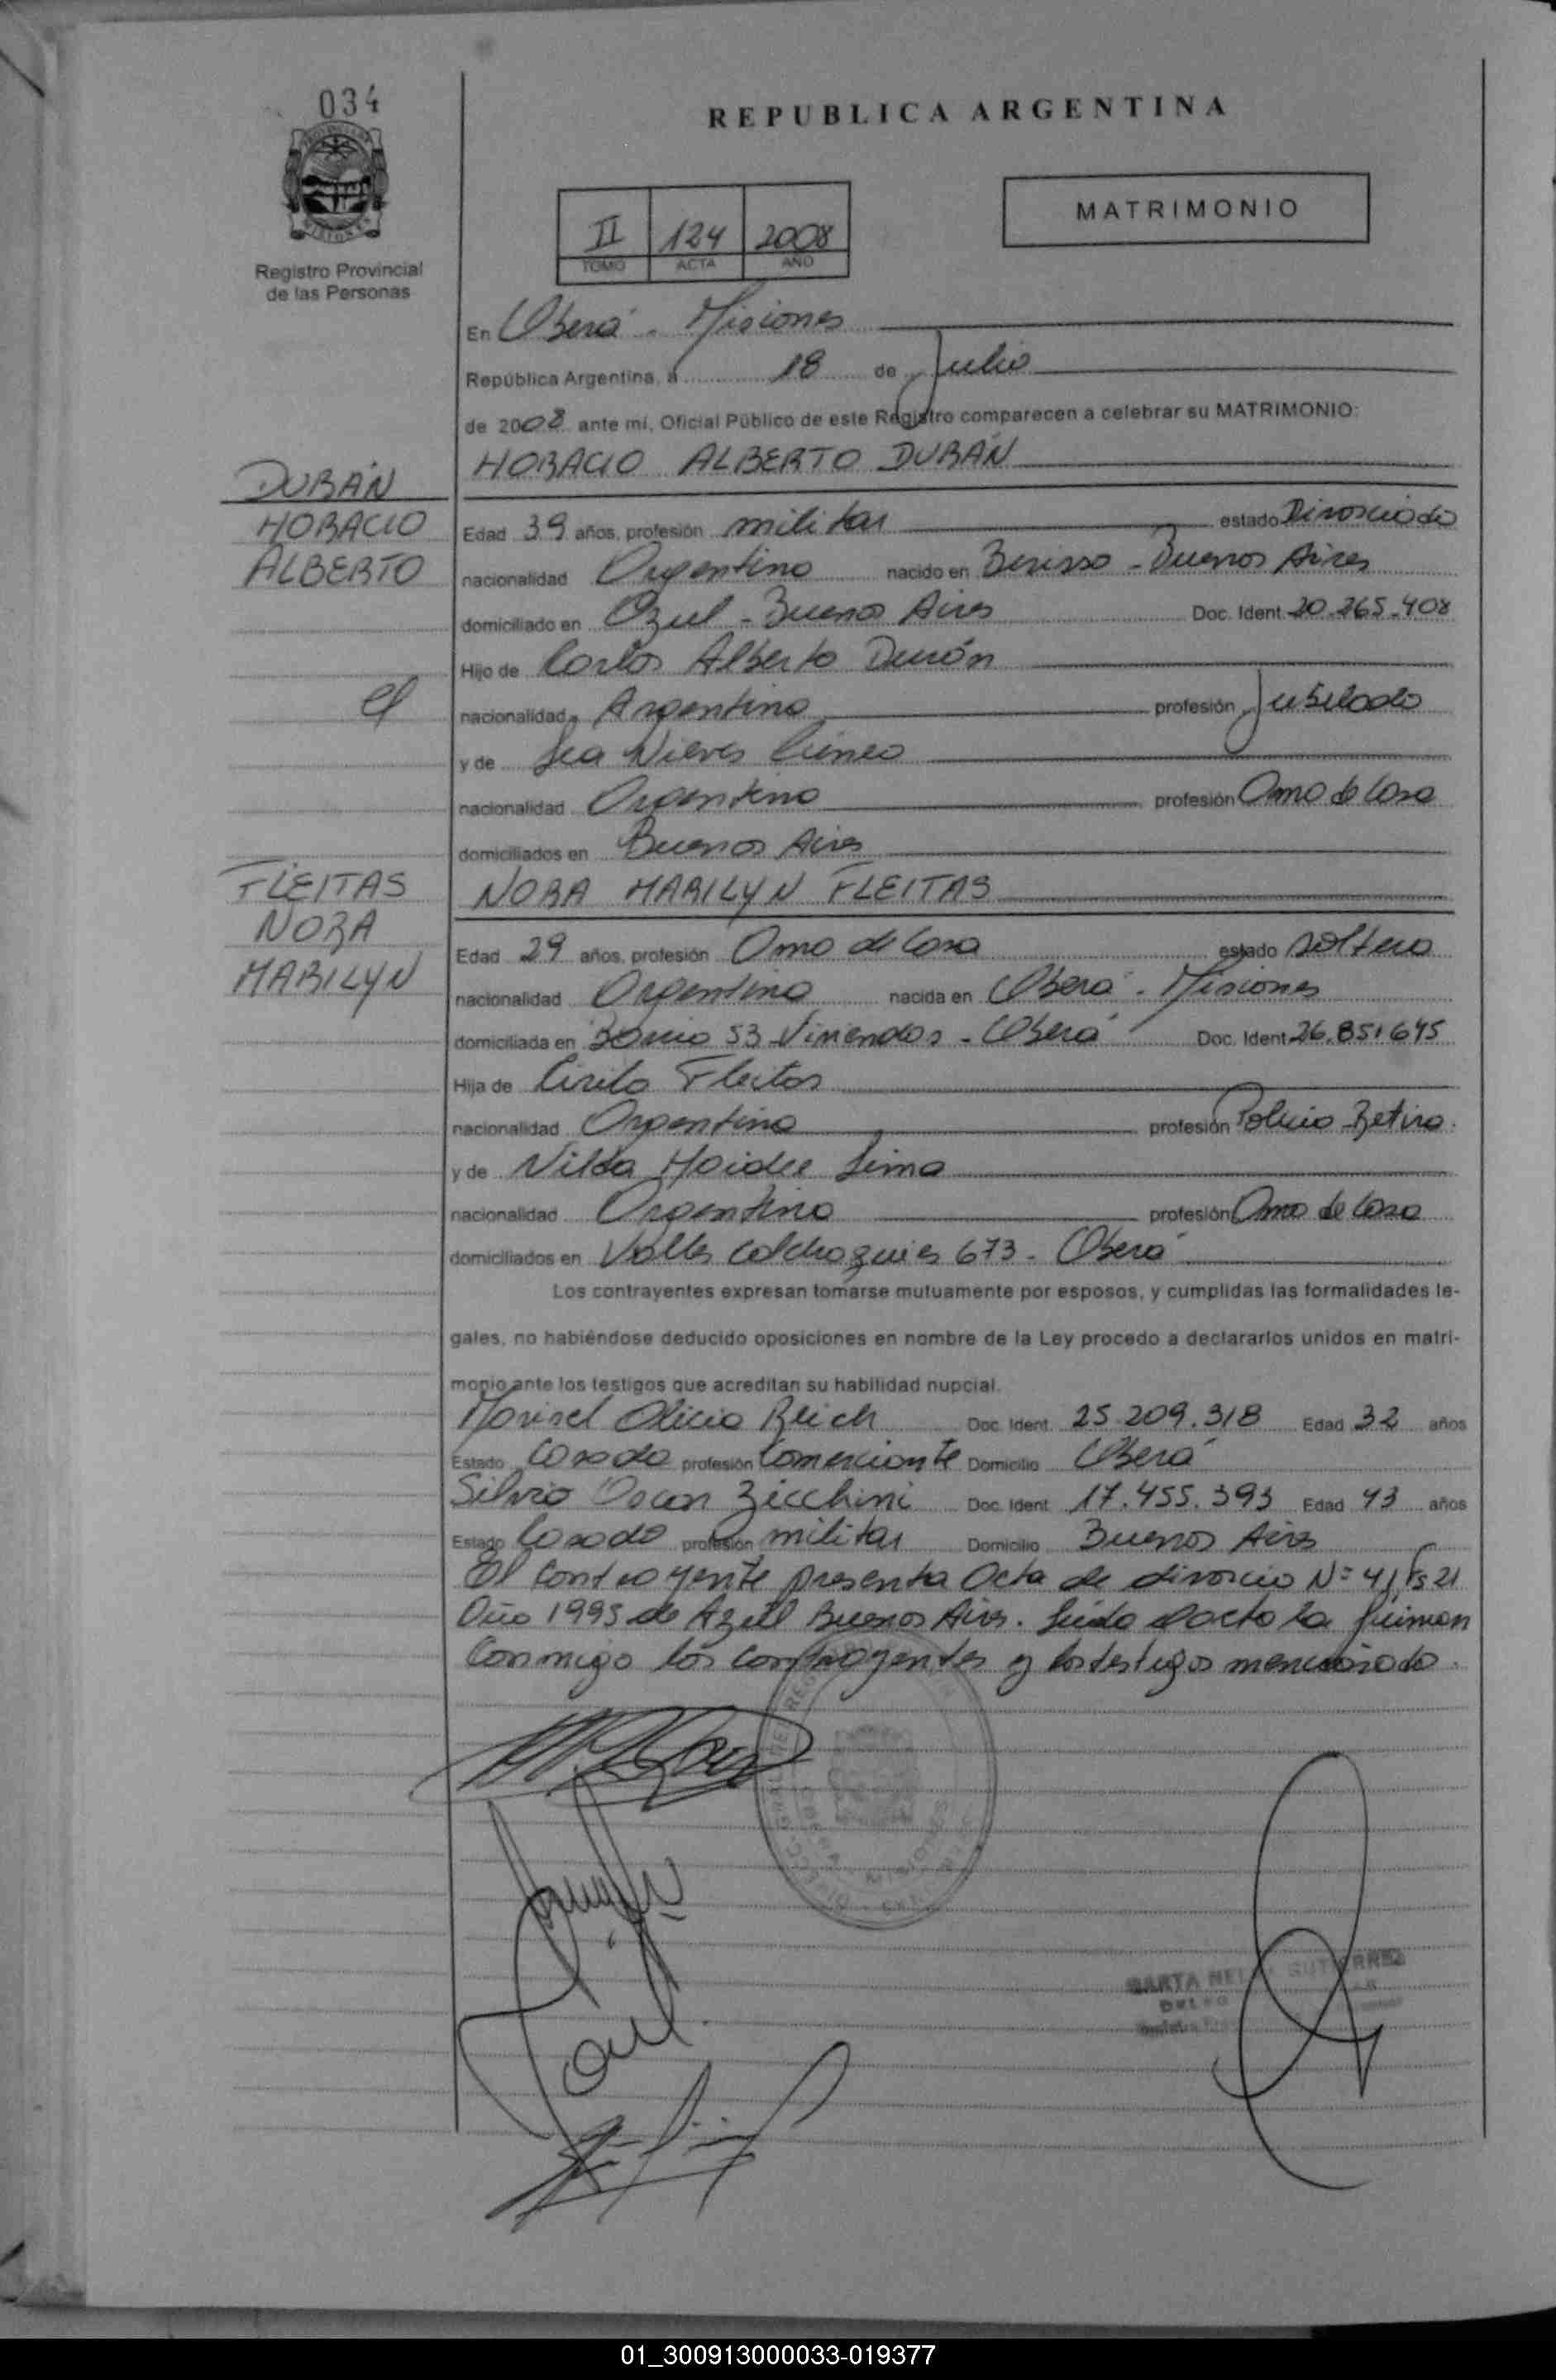 034
Registro Provincial
de las Personas
REPUBLICA ARGENTINA
MATRIMONIO
II 124 2008
TOMO ACTA AÑO
En Oberá - Misiones
República Argentina, a 18 de Julio
de 2008 ante mi, Oficial Público de este Registro comparecen a celebrar su MATRIMONIO:
HORACIO ALBERTO DURÁN
DURÁN
HORACIO
ALBERTO
Edad 39 años, profesión militar estado Divorciado
nacionalidad Argentino nacido en Berisso - Buenos Aires
domiciliado en Azul - Buenos Aires Doc. Ident. 20.265.408
Hijo de Carlos Alberto Durán
nacionalidad Argentina profesión Jubilado
y de Lea Nieves Cúneo
nacionalidad Argentina profesión Ama de Casa
domiciliados en Buenos Aires
NORA MARILYN FLEITAS
FLEITAS
NORA
MARILYN
Edad 29 años, profesión Ama de Casa estado soltera
nacionalidad Argentina nacida en Oberá - Misiones
domiciliada en Barrio 53 Viviendas - Oberá Doc. Ident. 26.851.645
Hija de Cirilo Fleitas
nacionalidad Argentina profesión Policia Retira.
y de Nilda Haidee Lima
nacionalidad Argentina profesión Ama de Casa
domiciliados en Valles Calchaquies 673 - Oberá
Los contrayentes expresan tomarse mutuamente por esposos, y cumplidas las formalidades le-
gales, no habiéndose deducido oposiciones en nombre de la Ley procedo a declararlos unidos en matri-
monio ante los testigos que acreditan su habilidad nupcial.
Marisel Alicia Reich Doc. Ident. 25.209.318 Edad 32 años
Estado Casada profesión Comerciante Domicilio Oberá
Silvio Oscar Zecchini Doc. Ident. 17.455.393 Edad 43 años
Estado Casado profesión militar Domicilio Buenos Aires
El contrayente presenta Acta de divorcio Nº 41 Fs 21
Año 1995 de Azul Buenos Aires. Leída el acta la firman
Conmigo los contrayentes y los testigos mencionado.
MISIONES
01_300913000033-019377